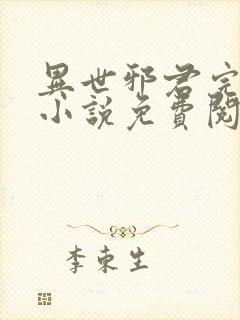 異世邪君完
小說免費閱
李東生